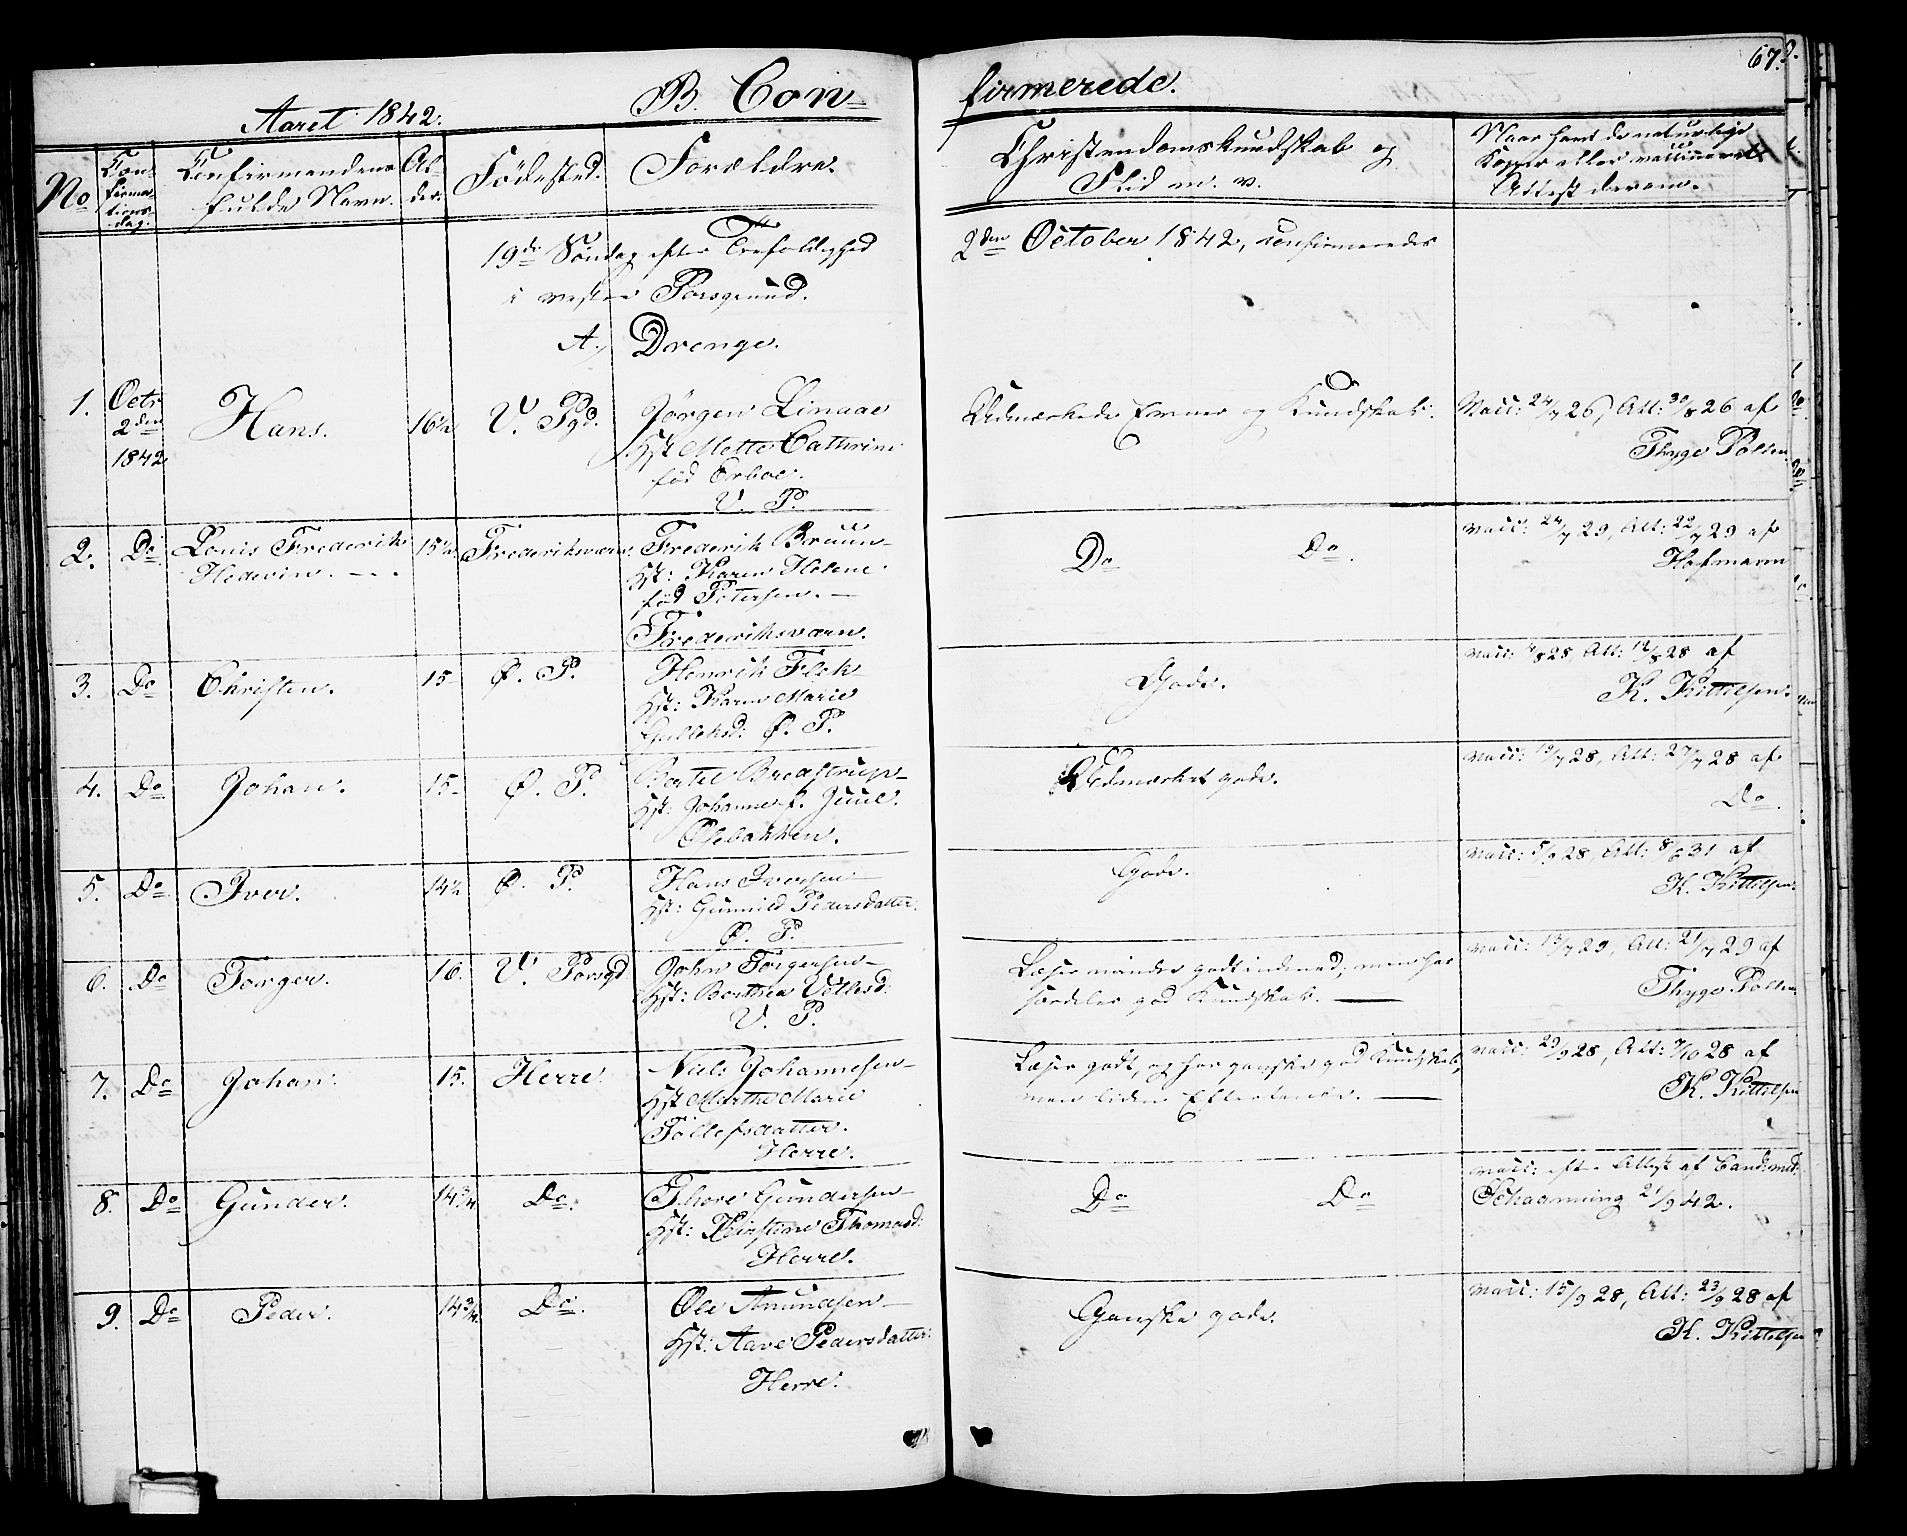 67.
Aaret 1842.
B. Con=
firmerede.
No
Con=
firma=
tions=
dag.
Confirmandens
fulde Navn.
Al=
der.
Fødested.
Forældre.
Christendomskundskab og
Flid m. v.
Naar havt de naturlige
Kopper eller vaccineret
Attest derom.
19de Søndag efter Trefoldighed
2den October 1842, confirmeredes
i vestre Porsgrund.
A. Drenge.
1.
Octr
2den
1842
Hans.
16½
V. Pgd.
Jørgen Linaae
Hst Mette Cathrine
fød Erboe.
V. P.
Udmærkede Evner og Kundskab.
Vacc: 24/7 26, Att: 30/8 26 af
Thyge Polsen
2.
Do
Louis Frederik
Hedevin.
15½
Frederiksværn.
Frederik Bruun
Hst: Karen Helene
fød Petersen.
Frederiksværn.
Do Do.
Vacc: 24/7 29, Att: 22/7 29 af
Hofmann
3.
Do
Christen.
15
Ø. P.
Henrik Flek
Hst: Karen Marie
Gulleksd: Ø. P.
Gode.
Vacc: 4/8 28, Att: 12/8 28 af
K. Kittelsen.
4.
Do
Johan.
15
Ø. P.
Bertel Bredstrup
Hst: Johanne f. Juul.
Osebakken.
Udmærket gode.
Vacc: 19/7 28, Att: 27/7 28 af
Do.
5.
Do
Iver.
14½
Ø. P.
Hans Iversen
Hst: Gunnild Pedersdatter.
Ø. P.
Gode.
Vacc: 5/9 28, Att: 8/6 31 af
K. Kittelsen
6.
Do
Torger.
16.
V. Porsgd
John Torgersen
Hst: Berthea Vetlesd:
V. P.
Læser mindre godt indenad, men har
særdeles god Kundskab.
Vacc: 13/7 29, Att: 21/7 29 af
Thyge Polsen
7.
Do
Johan.
15.
Herre.
Niels Johannesen
Hst Marthe Marie
Tollefsdatter.
Herre.
Læser godt, og har ganske god Kundskab,
men liden Eftertanke.
Vacc: 29/9 28, Att: 7/10 28 af
K. Kittelsen
8.
Do
Gunder.
14¾
Do.
Thore Gundersen
Hst: Kirstine Thomasd:
Herre.
Do Do
Vacc: efter Attest af Cand: med:
Schaanning 21/9 42.
9.
Do
Peder.
14¾
Do.
Ole Anundsen
Hst: Aave Pedersdatter.
Herre.
Ganske gode.
Vacc: 15/9 28, Att: 23/9 28 af
K. Kittelsen